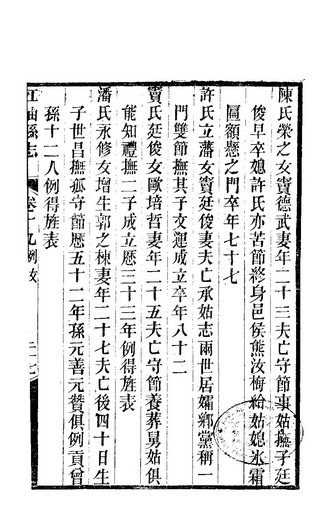 陳氏榮之女賣德武妻年二十三夫亡守節事姑撫子廷
俊早卒媳許氏亦苦節終身邑侯熊汝梅給姑媳氷霜
匾額懸之門卒年七十七
許氏立藩女賣廷俊妻夫亡承姑志兩世居孀鄉黨稱一
門雙節撫其子文運成立卒年八十二
賣氏廷俊女歐培哲妻年二十五夫亡守節養葬舅姑俱
能知禮撫二子成立歷三十三年例得旌表
潘氏永修女增生郭之棟妻年二十七夫亡後四十日生
子世昌撫孤守節歷五十二年孫元善元贊俱例貢曾
孫十二八例得旌表
卷十九列女
二十七